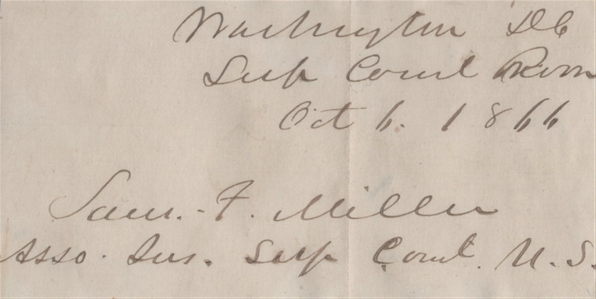 Washington DC
Sup Court Room
Oct 6. 1866
Sam. F. Miller
Asso. Jus. Sup Court. U.S.